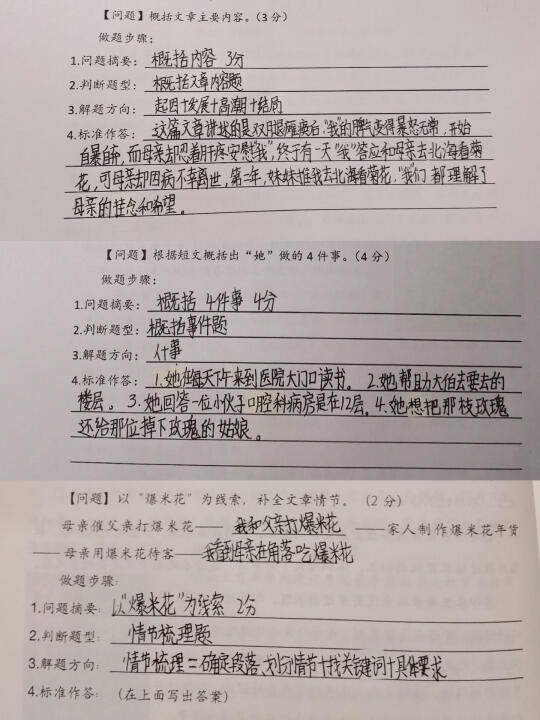 【问题】概括文章主要内容。（3 分）
做题步骤：
1.问题摘要：概括内容 3分
2.判断题型：概括文章内容题
3.解题方向：起因+发展+高潮+结局
4.标准作答：这篇文章讲述的是双腿瘫痪后，“我”的脾气变得暴怒无常，开始
自暴自弃，而母亲却忍着肝疼安慰“我”，终于有一天“我”答应和母亲去北海看菊
花，可母亲却因病不幸离世，第二年，妹妹推我去北海看菊花，“我们”都理解了
母亲的挂念和希望。
【问题】根据短文概括出“她”做的 4 件事。（4 分）
做题步骤：
1.问题摘要：概括 4件事 4分
2.判断题型：概括事件题
3.解题方向：什事
4.标准作答：1.她在每天下午来到医院大门口读书。 2.她帮助大伯去要去的
楼层。 3.她回答一位小伙子口腔科病房是在12层。4.她想把那枝玫瑰
还给那位掉下玫瑰的姑娘。
【问题】以“爆米花”为线索，补全文章情节。（2 分）
母亲催父亲打爆米花——我和父亲打爆米花——家人制作爆米花年货
——母亲用爆米花待客——我看到母亲在角落吃爆米花
做题步骤：
1.问题摘要：以“爆米花”为线索 2分
2.判断题型：情节梳理题
3.解题方向：情节梳理=确定段落，划分情节+找关键词+具体要求
4.标准作答：（在上面写出答案）